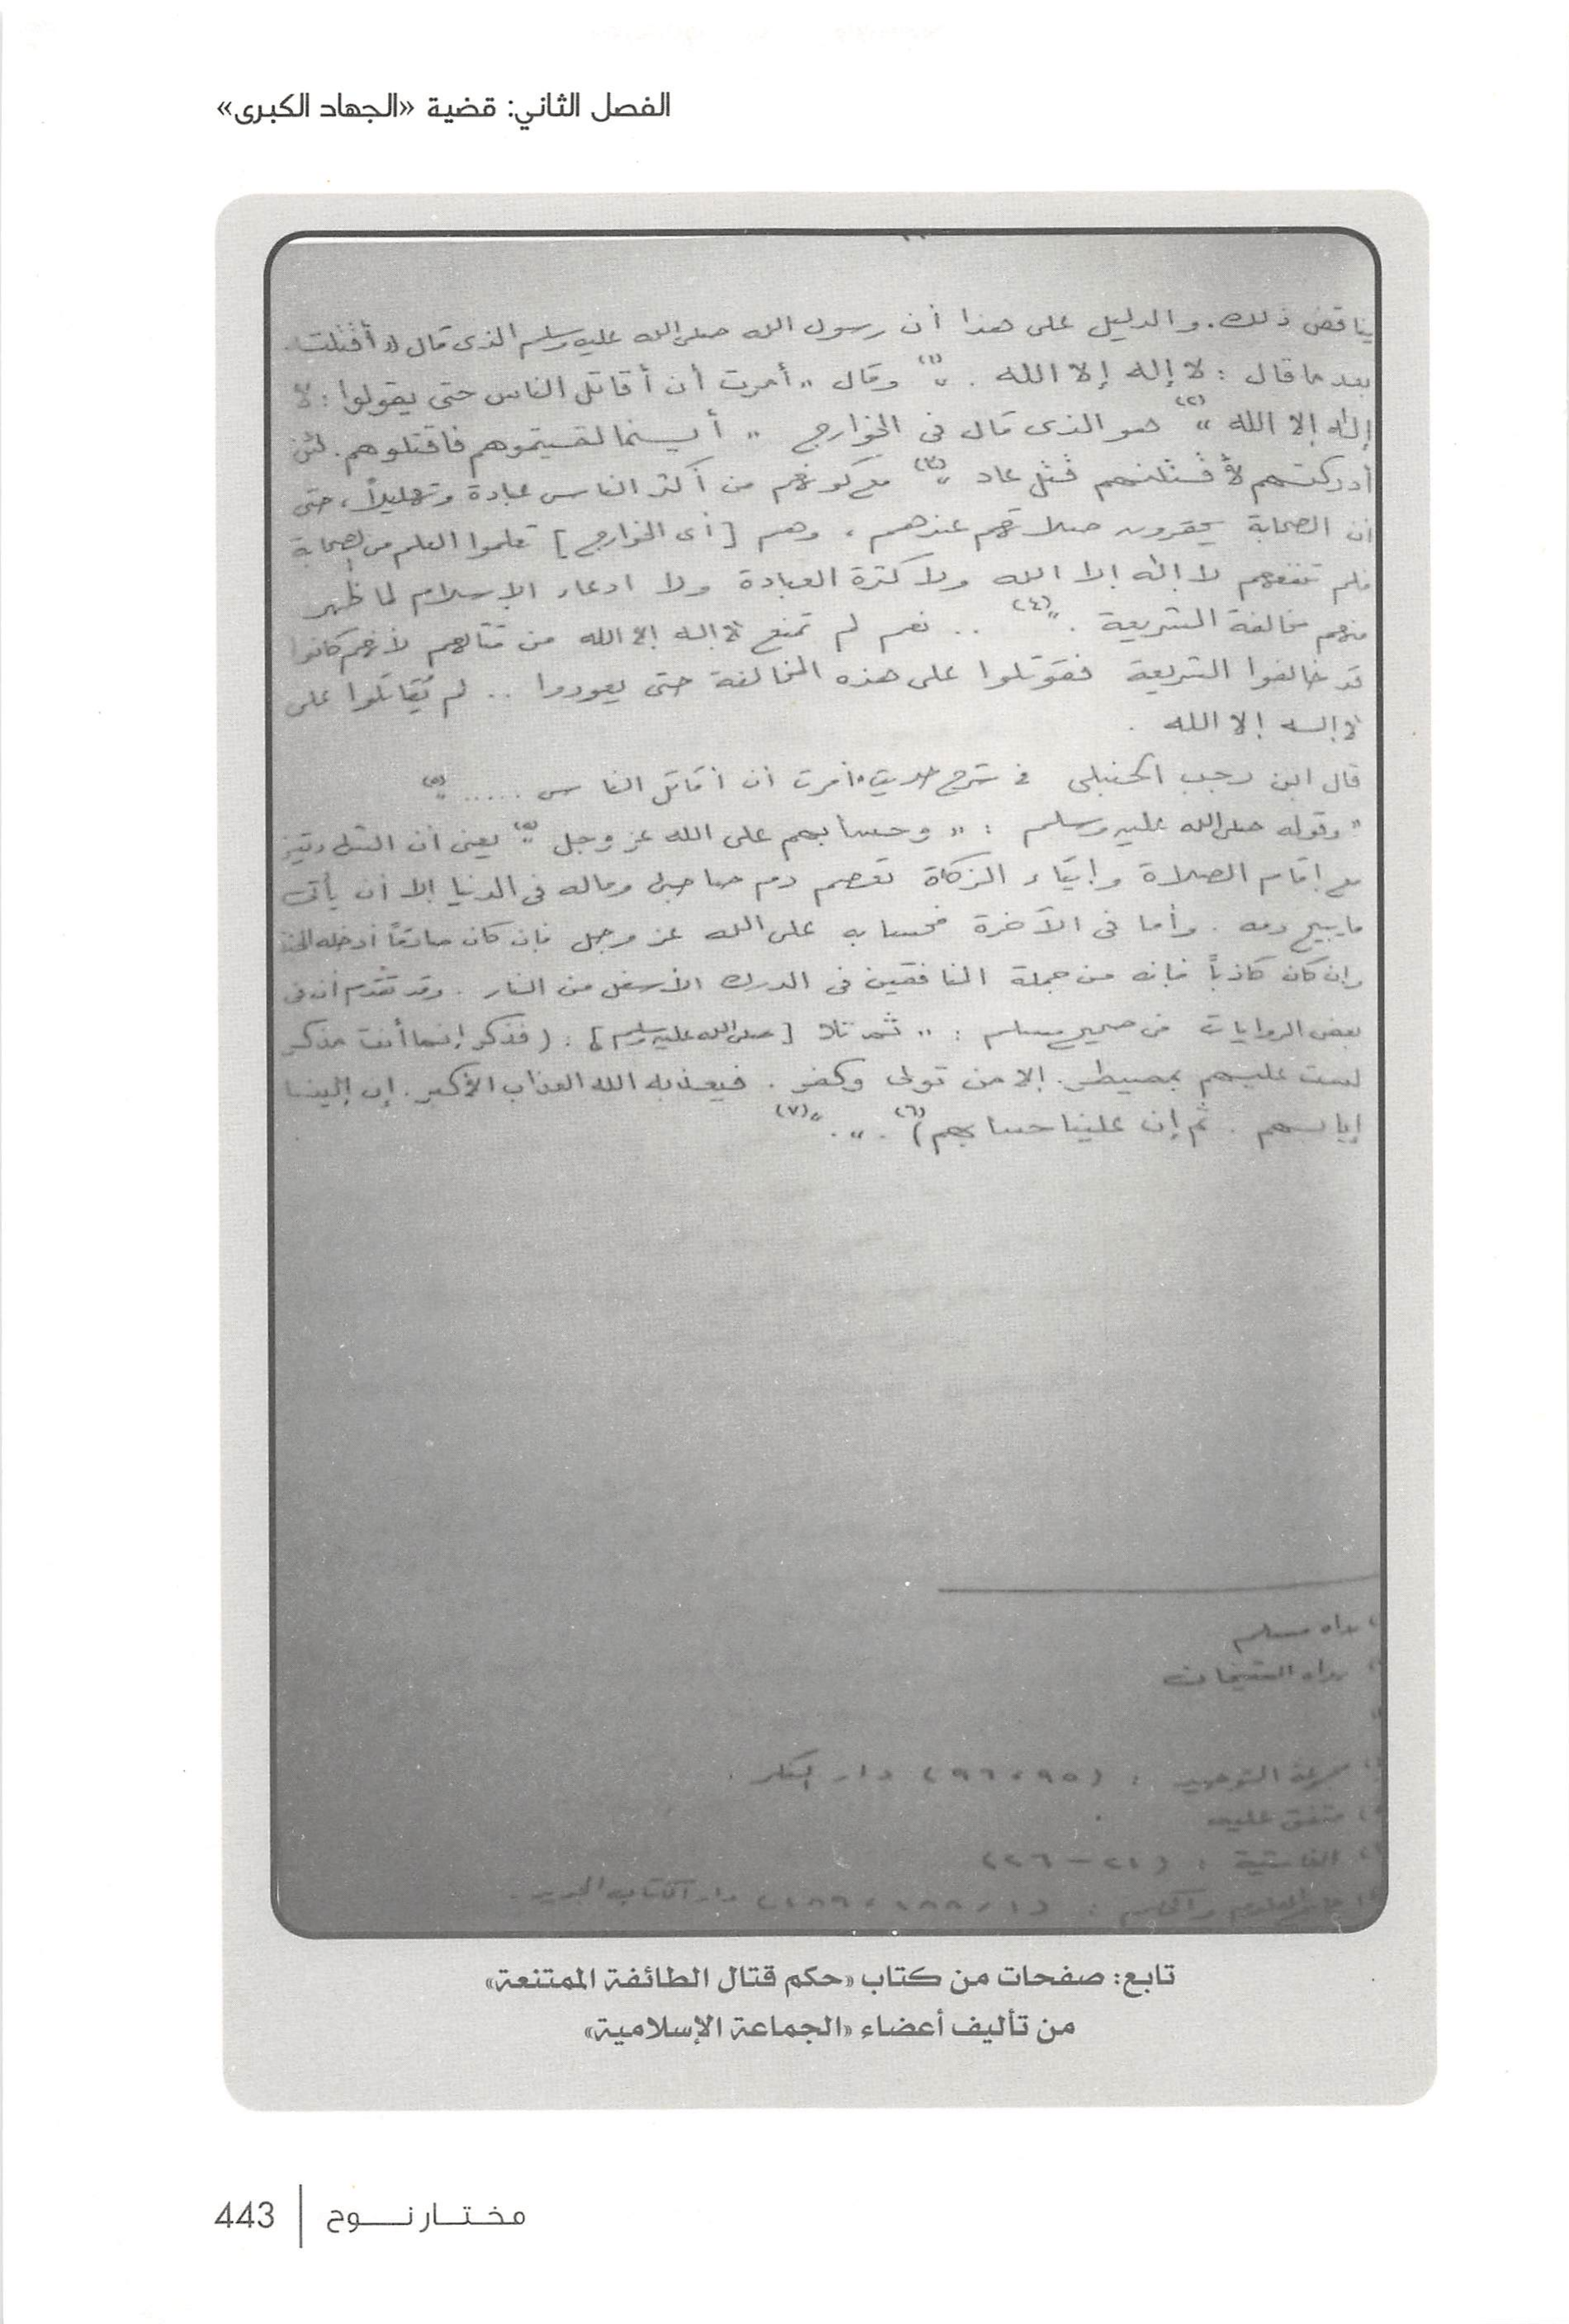 الفصل الثاني: قضية «الجهاد الكبرى»
يناقض ذلك. والدليل على هذا أن رسول الله صلى الله عليه وسلم الذى قال " أقتلته
بعد ما قال : لا إله إلا الله . "(١) وقال " أمرت أن أقاتل الناس حتى يقولوا : لا
إله إلا الله "(٢) هو الذى قال فى الخوارج " أينما لقيتموهم فاقتلوهم . لئن
أدركتهم لأقتلنهم قتل عاد "(٣) مع كونهم من أكثر الناس عبادة وتهليلاً ، حتى
أن الصحابة يحقرون صلاتهم عندهم ، وهم [ أى الخوارج ] تعلموا العلم من الصحابة
فلم تنفعهم لا إله إلا الله ولا كثرة العبادة ولا ادعاء الإسلام لما ظهر
منهم مخالفة الشريعة . "(٤) .. نعم لم تمنع لا إله إلا الله من قتالهم لأنهم كانوا
قد خالفوا الشريعة فقوتلوا على هذه المخالفة حتى يعودوا .. لم يُقاتَلوا على
لا إله إلا الله .
قال ابن رجب الحنبلى فى شرح حديث " أمرت أن أقاتل الناس ..... "(٥)
" وقوله صلى الله عليه وسلم : " وحسابهم على الله عز وجل "(٥) يعنى أن الشهادتين
مع إقام الصلاة وإيتاء الزكاة تعصم دم صاحبها وماله فى الدنيا إلا أن يأتى
ما يبيح دمه . وأما فى الآخرة فحسابه على الله عز وجل فإن كان صادقاً أدخله الجنة
وإن كان كاذباً فإنه من جملة المنافقين فى الدرك الأسفل من النار . وقد تقدم أن فى
بعض الروايات فى صحيح مسلم : " ثم تلا [ صلى الله عليه وسلم ] : ( فذكر إنما أنت مذكر
لست عليهم بمصيطر . إلا من تولى وكفر . فيعذبه الله العذاب الأكبر . إن إلينا
إيابهم . ثم إن علينا حسابهم )(٦) . " . "(٧)
رواه مسلم
رواه الشيخان
التوحيد : (٩٥ ، ٩٦) دار الفكر .
متفق عليه
الغاشية : (٢١ - ٢٦)
جامع العلوم والحكم :
تابع: صفحات من كتاب «حكم قتال الطائفة الممتنعة»
من تأليف أعضاء «الجماعة الإسلامية»
مختار نوح | 443